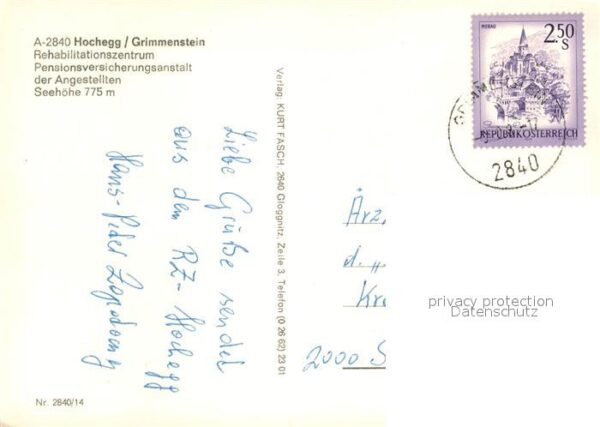 A-2840 Hochegg / Grimmenstein
Rehabilitationszentrum
Pensionsversicherungsanstalt
der Angestellten
Seehöhe 775 m
Liebe Grüße sendet
aus dem RZ-Hochegg
Hans-Peter
Verlag: KURT FASCH, 2640 Gloggnitz, Zeile 3, Telefon (0 26 62) 23 01
MURAU
2.50
S
REPUBLIK ÖSTERREICH
2840
Ärz
d. "
Kr
2000 S
privacy protection
Datenschutz
Nr. 2840/14